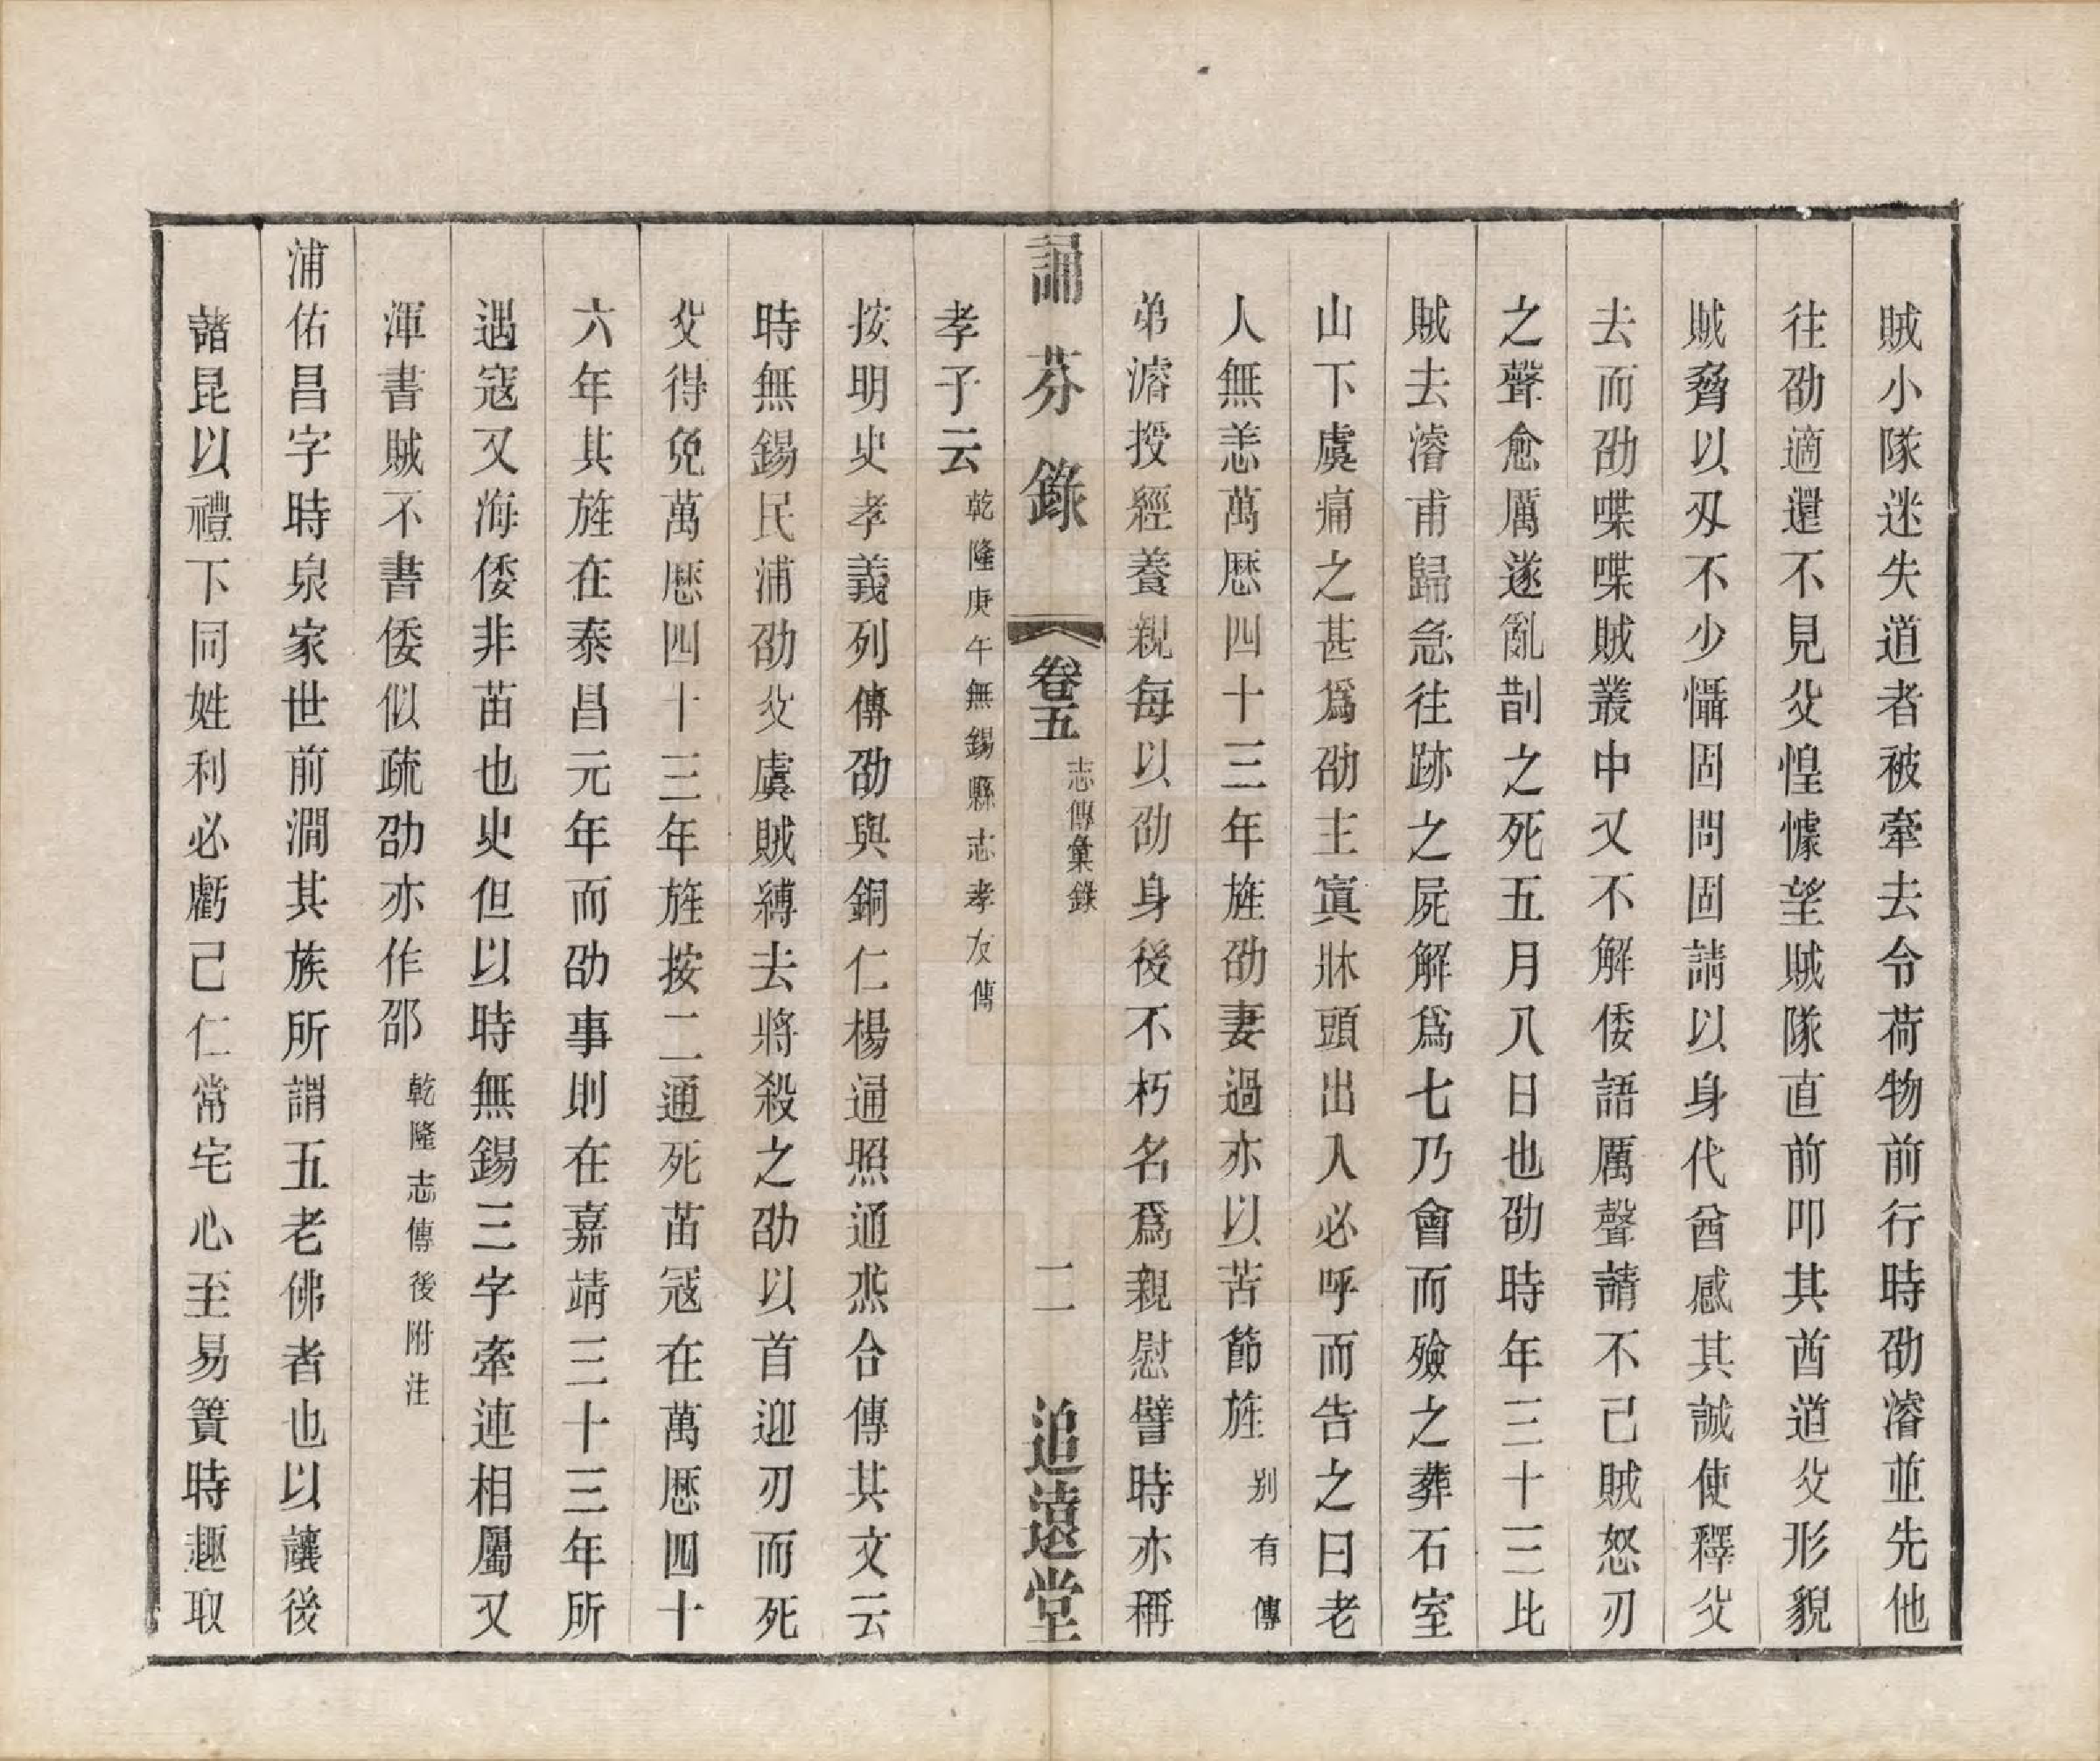 賊小隊迷失道者被牽去令荷物前行時劭濬並先他
往劭適還不見父惶懅望賊隊直前叩其酋道父形貌
賊脅以刃不少懾固問固請以身代酋感其誠使釋父
去而劭喋喋賊叢中又不解倭語厲聲請不已賊怒刃
之聲愈厲遂亂剒之死五月八日也劭時年三十三比
賊去濬甫歸急往跡之屍解爲七乃會而殮之葬石室
山下虞痛之甚爲劭主寘牀頭出入必呼而告之曰老
人無恙萬厯四十三年旌劭妻過亦以苦節旌 别有傳
弟濬授經養親每以劭身後不朽名爲親慰譬時亦稱
誦芬錄 卷五 志傳彙錄 二 追遠堂
孝子云 乾隆庚午無錫縣志孝友傳
按明史孝義列傳劭與銅仁楊通照通烝合傳其文云
時無錫民浦劭父虞賊縛去將殺之劭以首迎刃而死
父得免萬厯四十三年旌按二通死苗冦在萬厯四十
六年其旌在泰昌元年而劭事則在嘉靖三十三年所
遇寇又海倭非苗也史但以時無錫三字牽連相屬又
渾書賊不書倭似疏劭亦作邵 乾隆志傳後附注
浦佑昌字時泉家世前澗其族所謂五老佛者也以讓後
諸昆以禮下同姓利必虧己仁常宅心至易簀時趣取